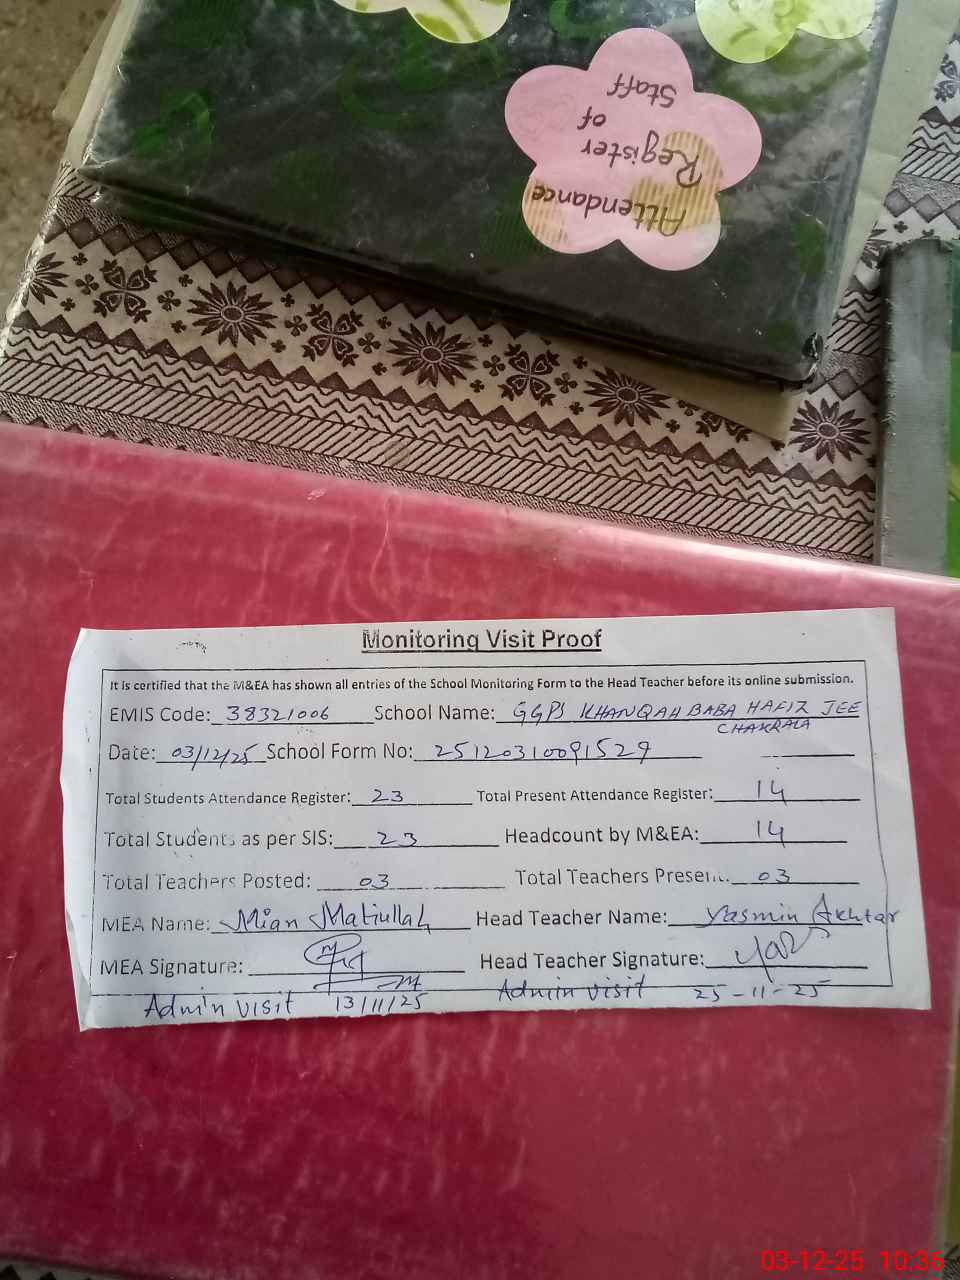 Attendance
Register
of
Staff
Monitoring Visit Proof
It is certified that the M&EA has shown all entries of the School Monitoring Form to the Head Teacher before its online submission.
EMIS Code: 38321006 School Name: GGPS KHANQAH BABA HAFIZ JEE
CHAKRALA
Date: 03/12/25 School Form No: 25120310091529
Total Students Attendance Register: 23 Total Present Attendance Register: 14
Total Students as per SIS: 23 Headcount by M&EA: 14
Total Teachers Posted: 03 Total Teachers Present: 03
MEA Name: Mian Matiullah Head Teacher Name: Yasmin Akhtar
MEA Signature: Head Teacher Signature:
Admin visit 13/11/25 Admin visit 25-11-25
03-12-25 10:36